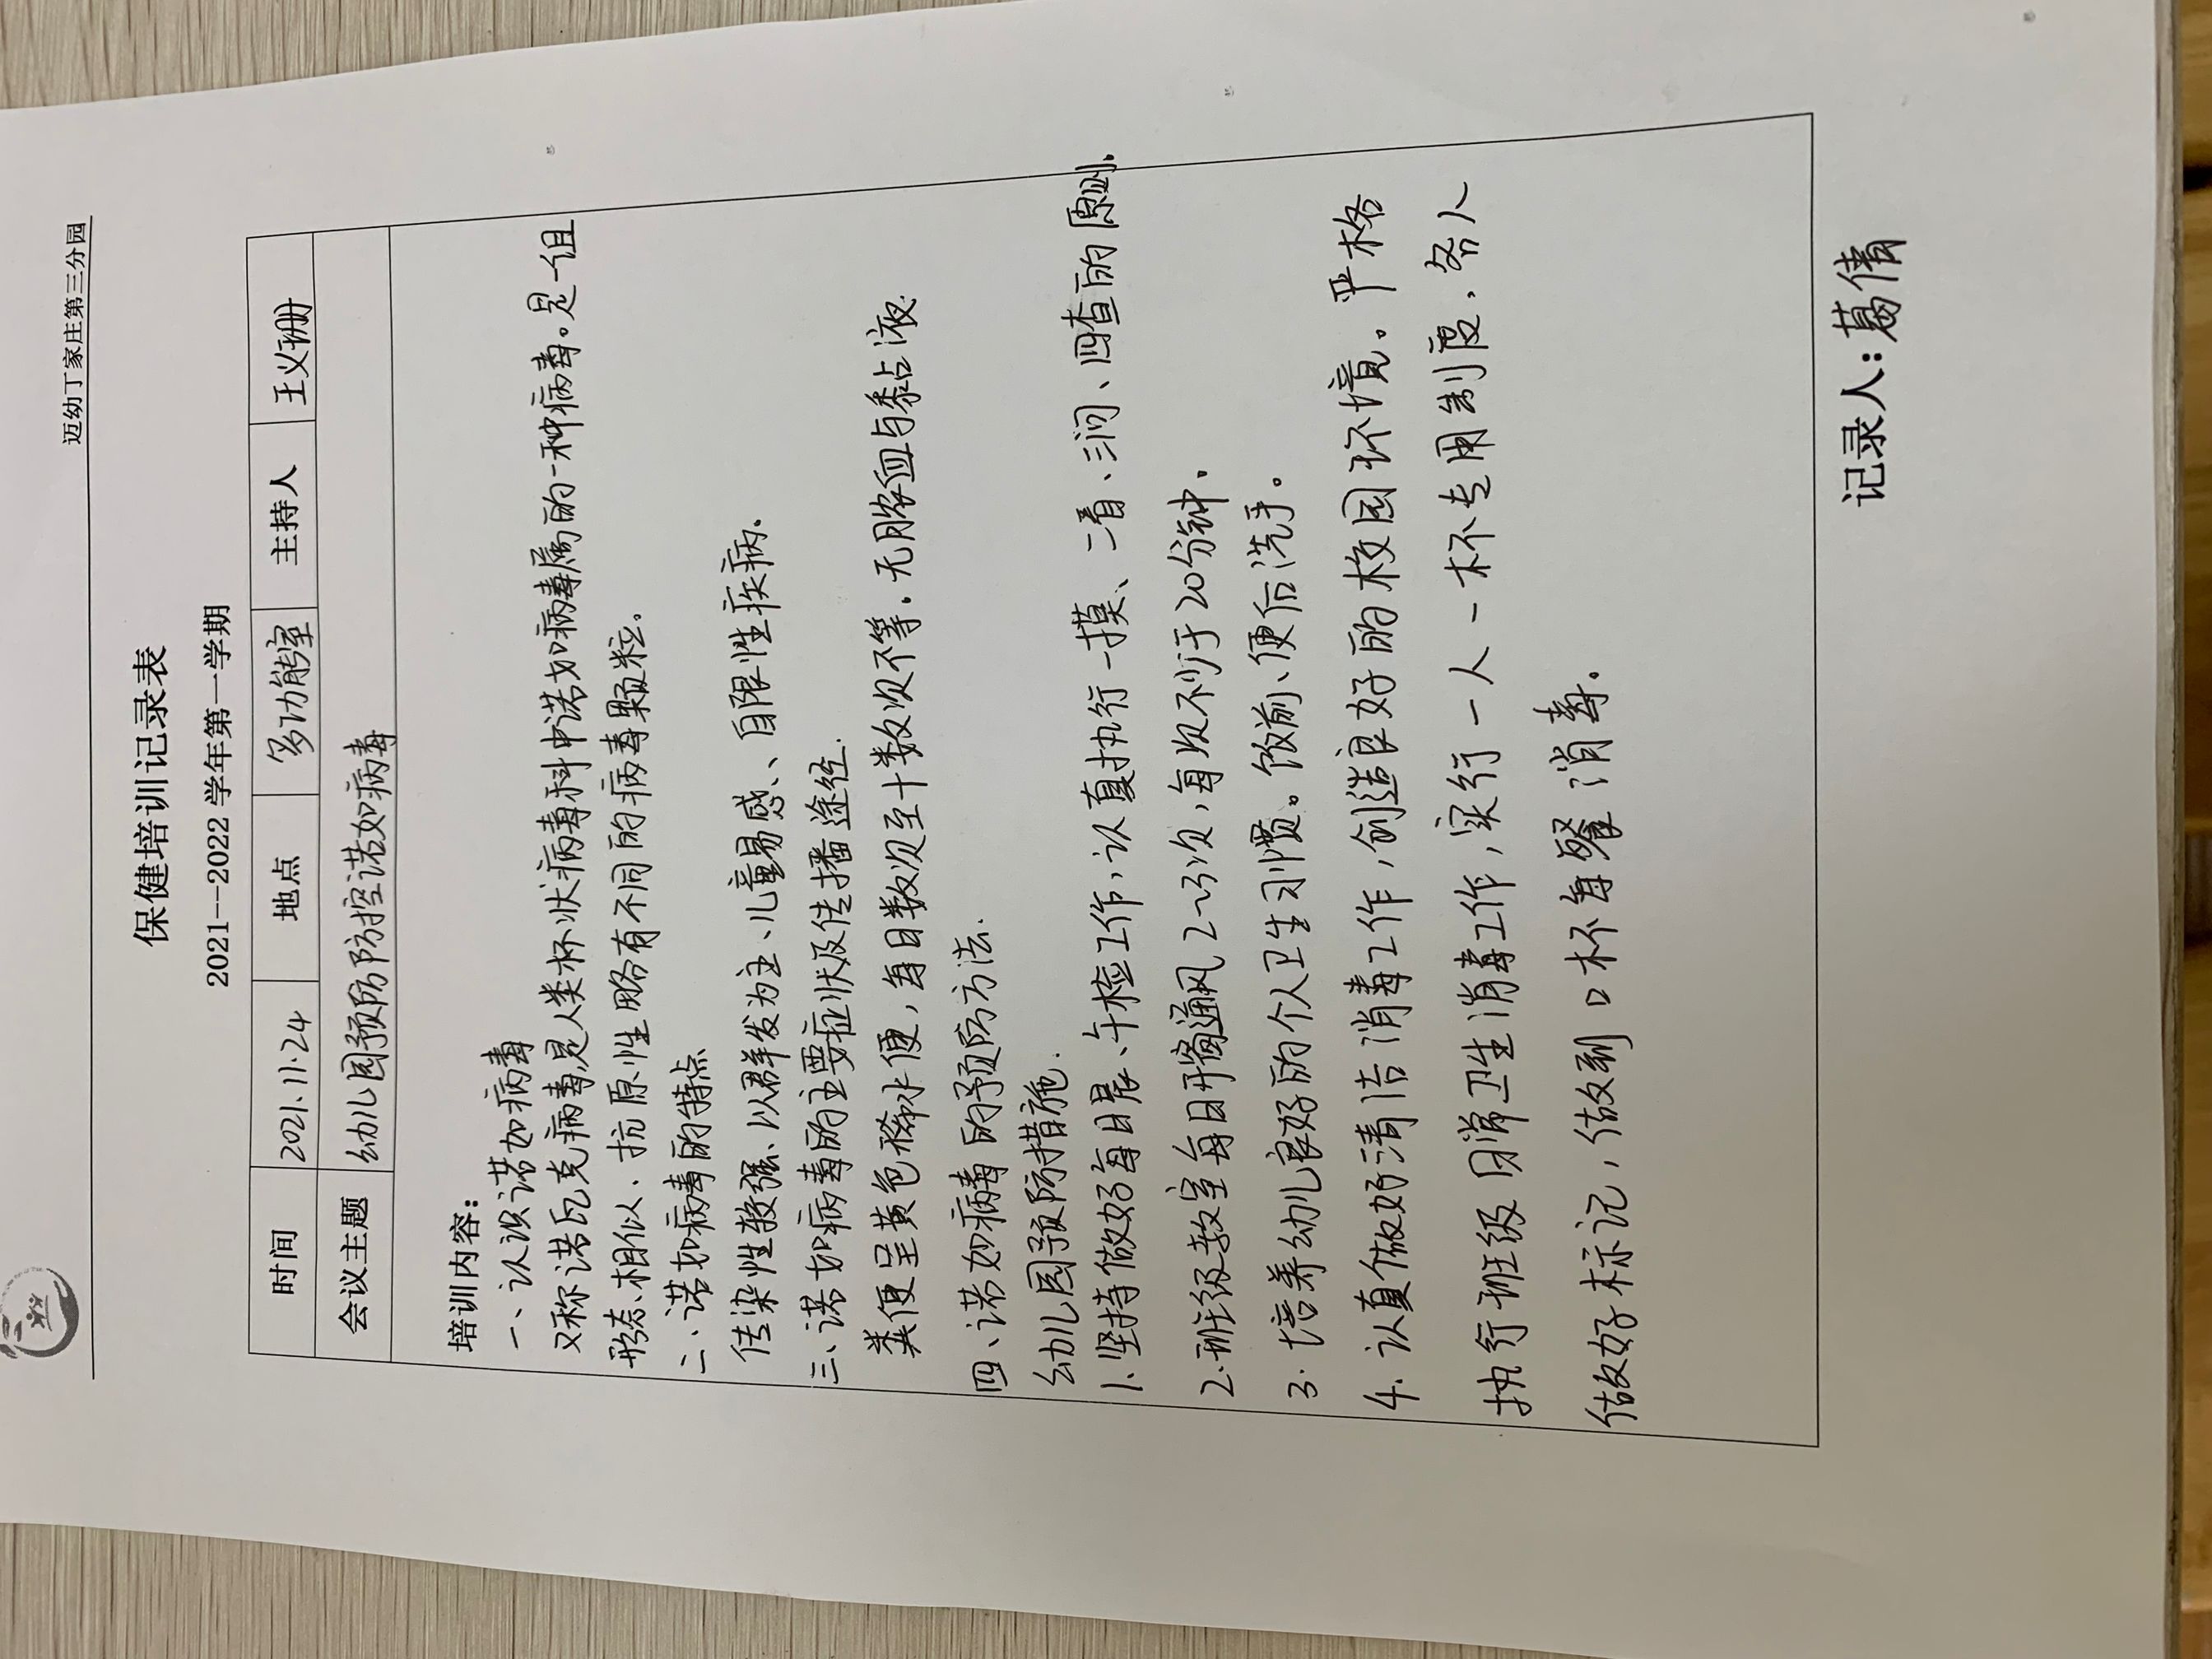 迈幼丁家庄第三分园
保健培训记录表
2021--2022 学年第一学期
时间 2021.11.24 地点 多功能室 主持人 王义珊
会议主题 幼儿园预防防控诺如病毒
培训内容：
一、认识诺如病毒
又称诺瓦克病毒,是人类杯状病毒科中诺如病毒属的一种病毒。是一组
形态、相似、抗原性略有不同的病毒颗粒。
二、诺如病毒的特点
传染性较强、以群发为主、儿童易感、、自限性疾病.
三、诺如病毒的主要症状及传播途径.
粪便呈黄色稀水便，每日数次至十数次不等.无脓血与黏占液.
四、诺如病毒的预防方法.
幼儿园预防措施.
1.坚持做好每日晨、午检工作，认真执行一摸、二看、三问、四查的原则.
2.班级教室每日开窗通风2~3次，每次不少于20分钟.
3.培养幼儿良好的个人卫生习惯。饭前、便后洗手。
4.认真做好清洁消毒工作，创造良好的校园环境。严格
执行班级日常卫生消毒工作，实行一人一杯专用制度,各人
做好标记，做到口杯每餐消毒.
记录人：葛倩